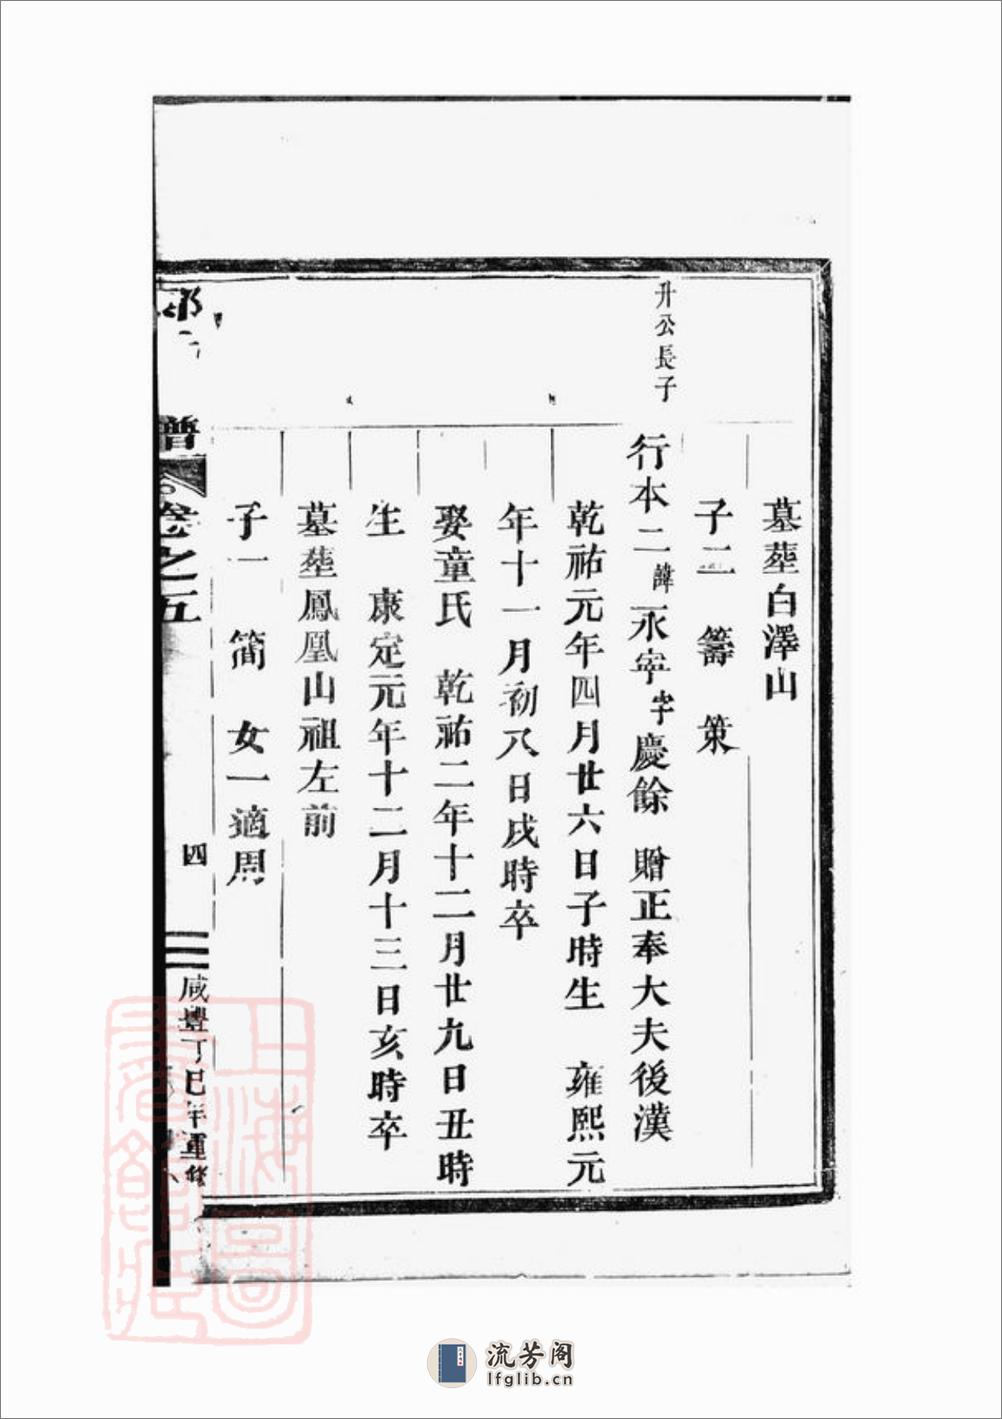 墓塟白澤山
子二　籌　策
升公長子
行本二諱永寜字慶餘　贈正奉大夫後漢
乾祐元年四月廿六日子時生　雍熙元
年十一月初八日戌時卒
娶童氏　乾祐二年十二月廿九日丑時
生　康定元年十二月十三日亥時卒
墓塟鳳凰山祖左前
子一　簡　女一適周
譜
卷之五
四
咸豐丁巳年重修
上海圖書館藏
流芳阁
lfglib.cn